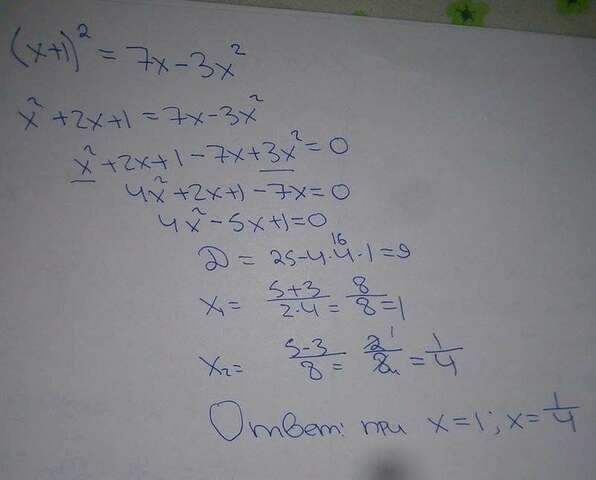 (x+1)² = 7x-3x²
x²+2x+1=7x-3x²
x²+2x+1-7x+3x²=0
4x²+2x+1-7x=0
4x²-5x+1=0
D = 25-4·4·1=9 16
x₁= 5+3/2·4 = 8/8 =1
x₂= 5-3/8 = 2/8 1/4 = 1/4
Ответ: при x=1; x=1/4